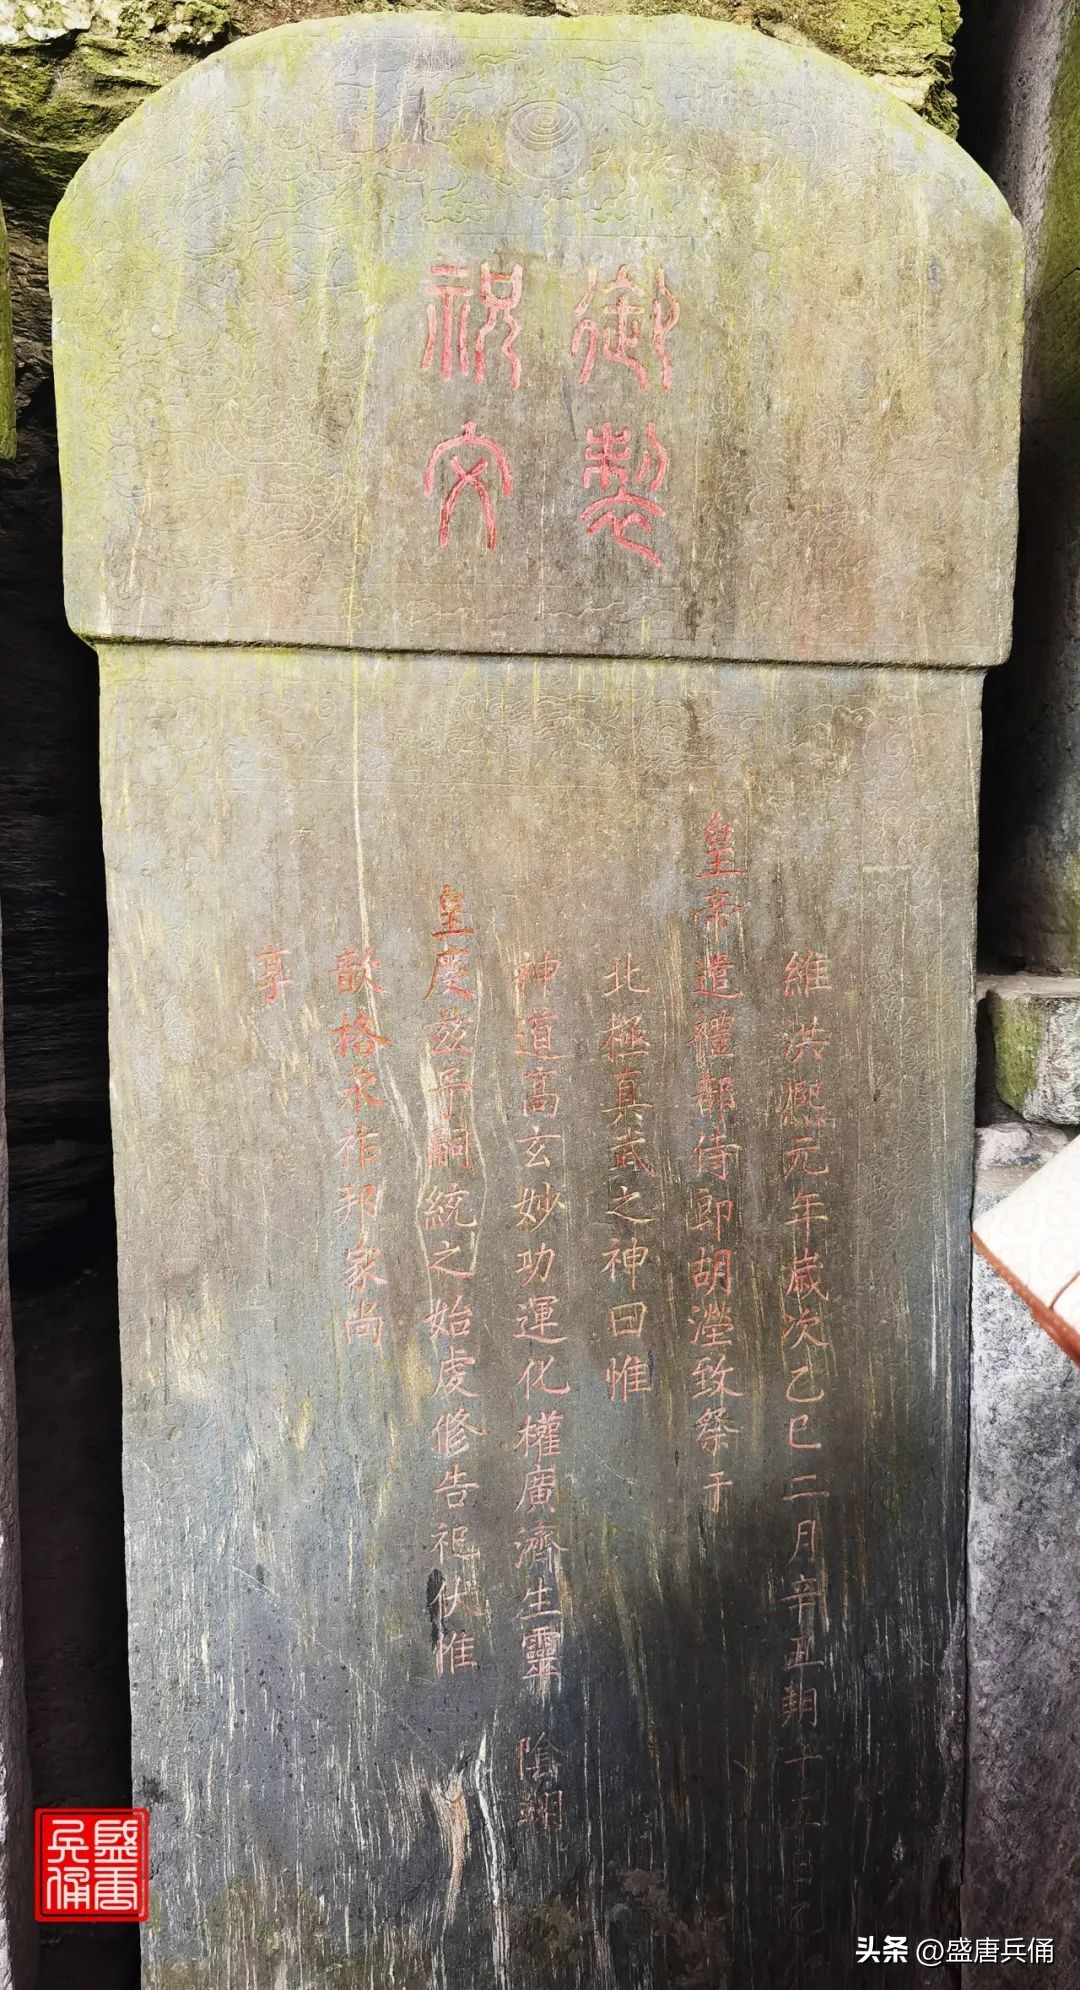 御製
祝文
維洪熙元年歲次乙巳二月辛丑朔十五日乙
皇帝遣禮部侍郎胡濙致祭于
北極真武之神曰惟
神道高玄妙功運化權廣濟生靈陰翊
皇度茲予嗣統之始虔修告祀伏惟
歆格永祚邦家尚
享
盛唐
兵俑
头条 @盛唐兵俑